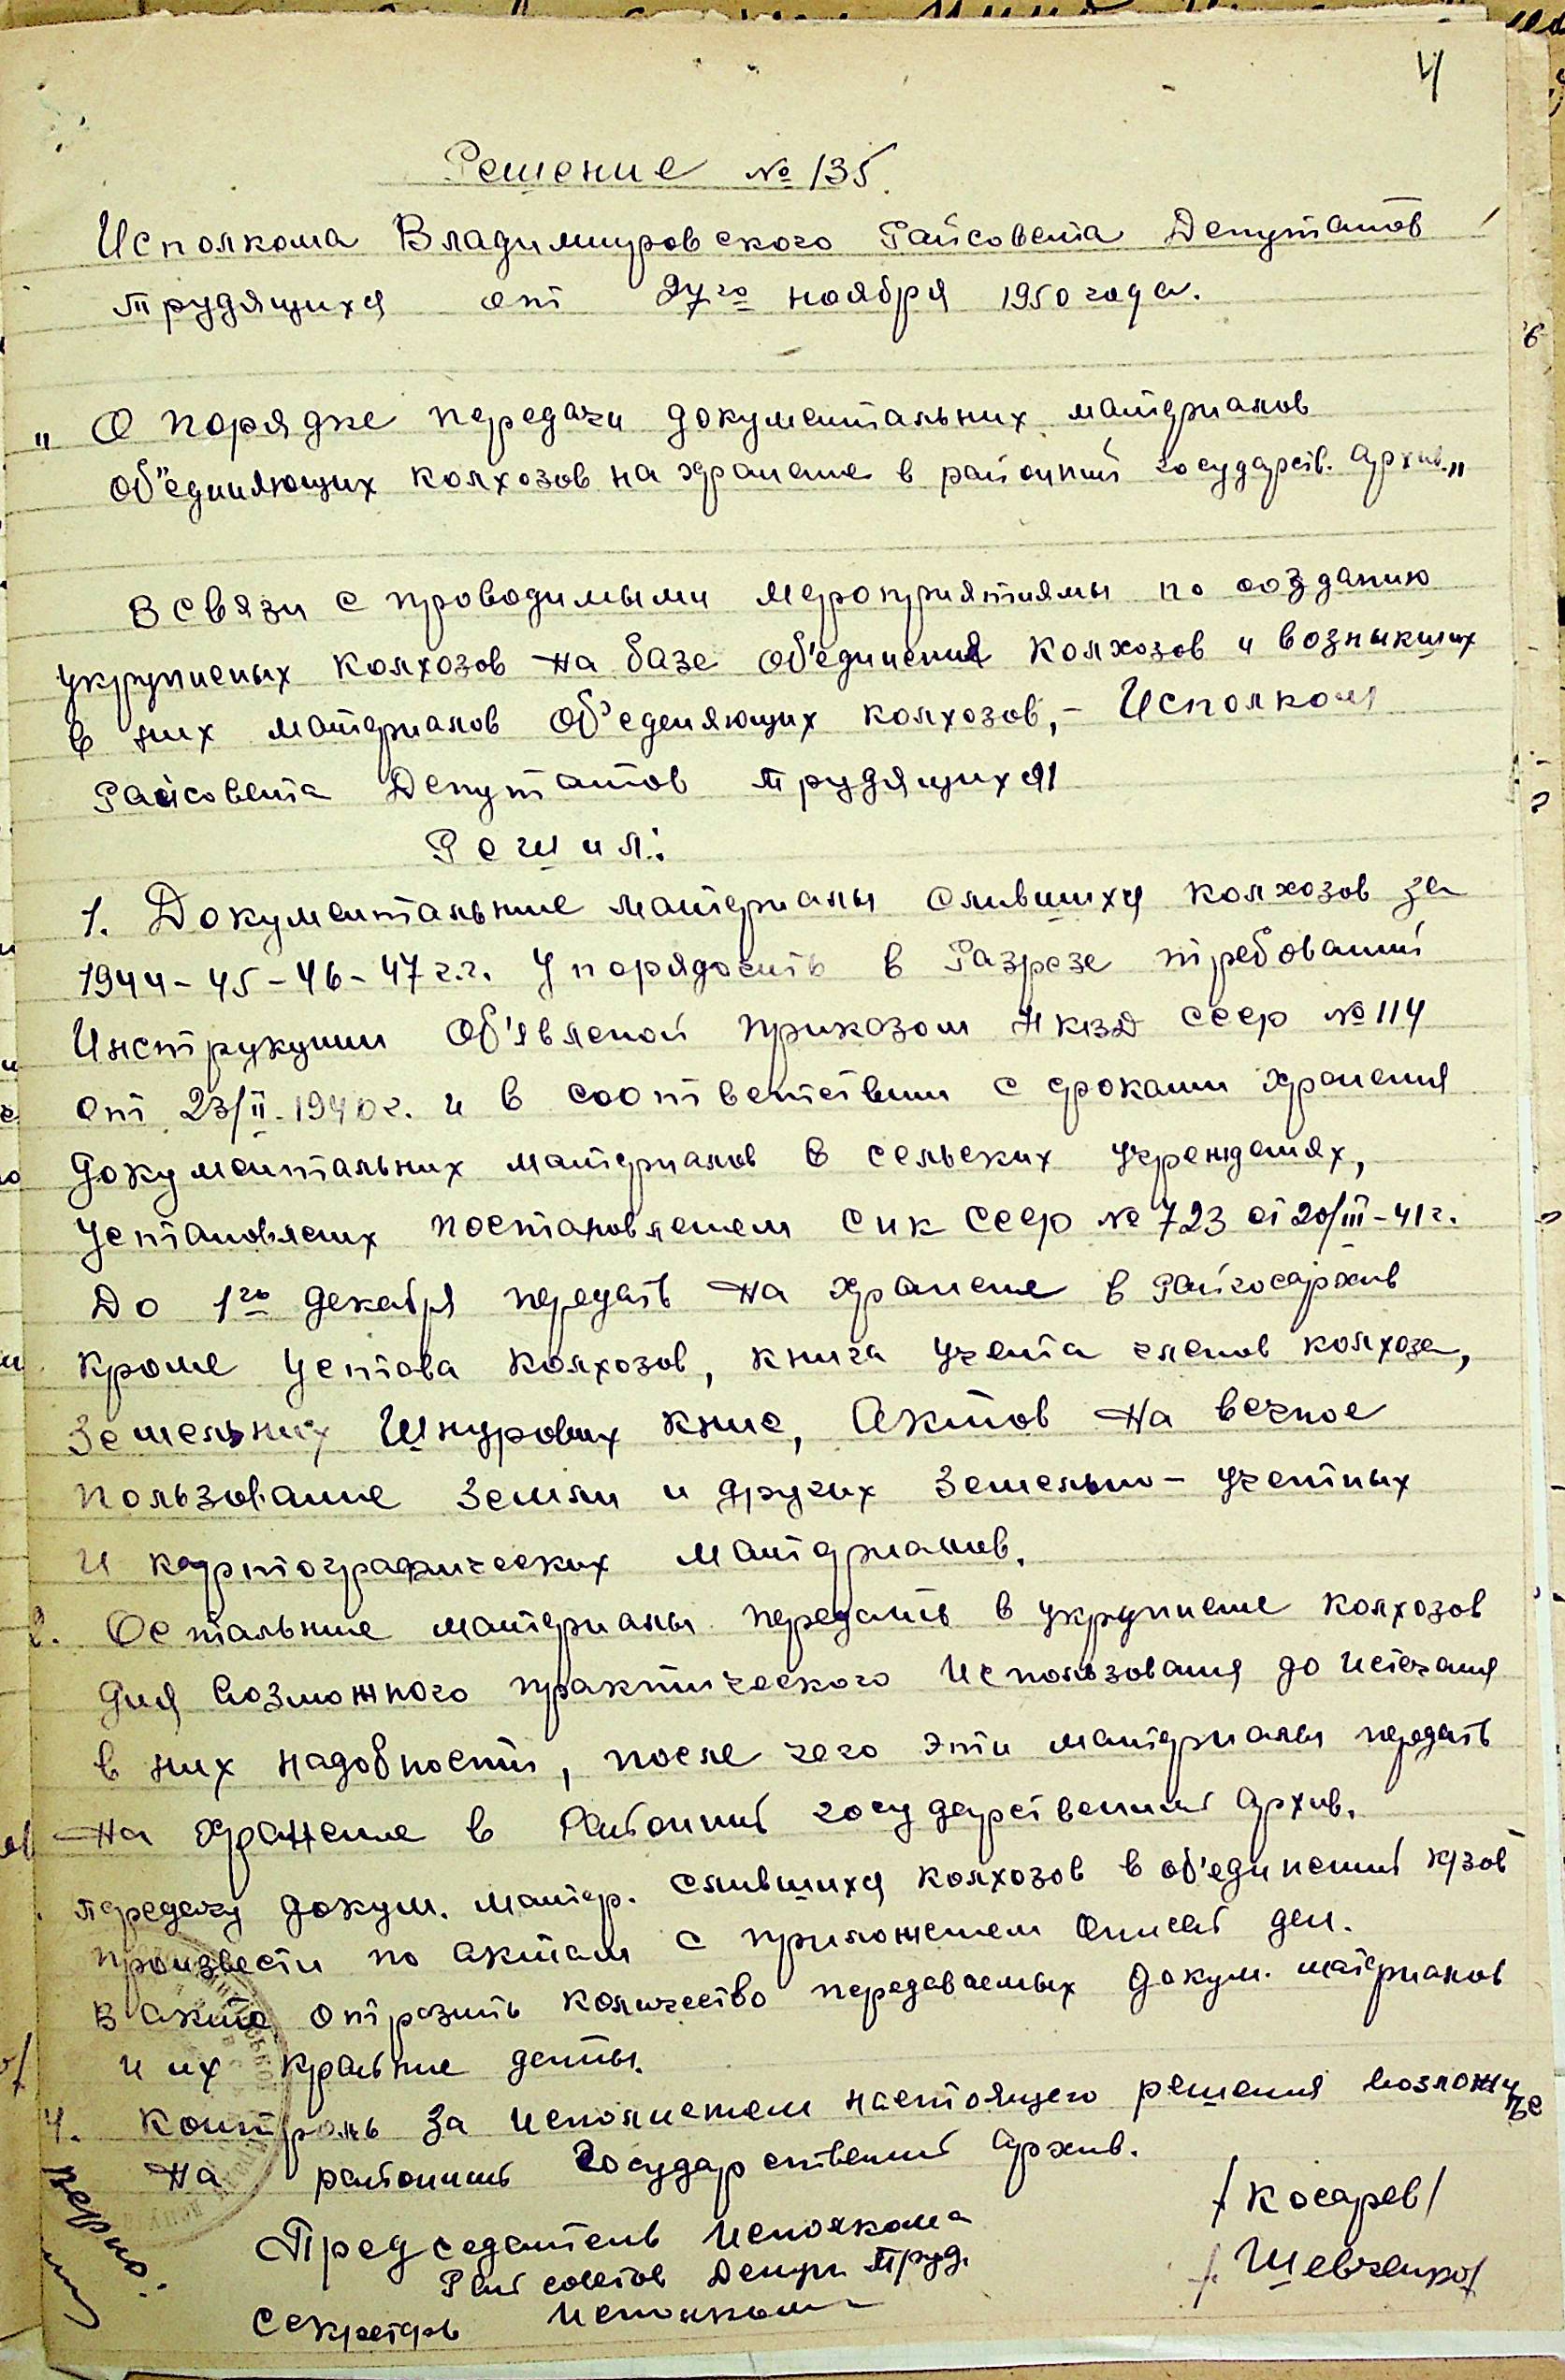 4
Решение № 135.
Исполкома Владимировского Райсовета Депутатов
трудящихся от 27го ноября 1950 года.
„ О порядке передачи документальных материалов
об"единяющих колхозов на хранение в районный государств. архив.„
В связи с проводимыми мероприятиямы по созданию
укрупненых колхозов на базе об'единения колхозов и возныкших
в них материалов об'еденяющих колхозов,- Исполком
Райсовета Депутатов трудящихся
Решил:
1. Документальные материалы слившихся колхозов за
1944-45-46-47 г.г. упорядочить в Разрезе требований
Инструкции об'явленой приказом НКВД СССР № 114
от 23/II-1940г. и в соответствии с сроками хранения
документальных материалов в сельских учреждениях,
установленых постановлением СНК СССР № 723 от 20/III-41г.
До 1го декабря передать на хранение в Райгосархив
кроме устава колхозов, книга учета членов колхоза,
земельних Шнуровых книг, Актов на вечное
пользование Земли и других Земельно-учетных
и картографических материалов.
2. Остальные материалы передать в укрупнение колхозов
для возможного практического использования до истечания
в них надобности, после чего эти материалы передать
на хранение в Районный государственный архив.
передачу докум. матер. слившихся колхозов в об'единений к/зов
произвести по актам с приложением описей дел.
в акте отразить количество передаваемых докум. материалов
и их крайние даты.
4. контроль за исполнением настоящего решения возложить
на районный Государственный архив.
Верно:
Председатель исполкома
Рай советов Депут. Труд. /Косарев/
Секретарь исполкома /Шевченко/